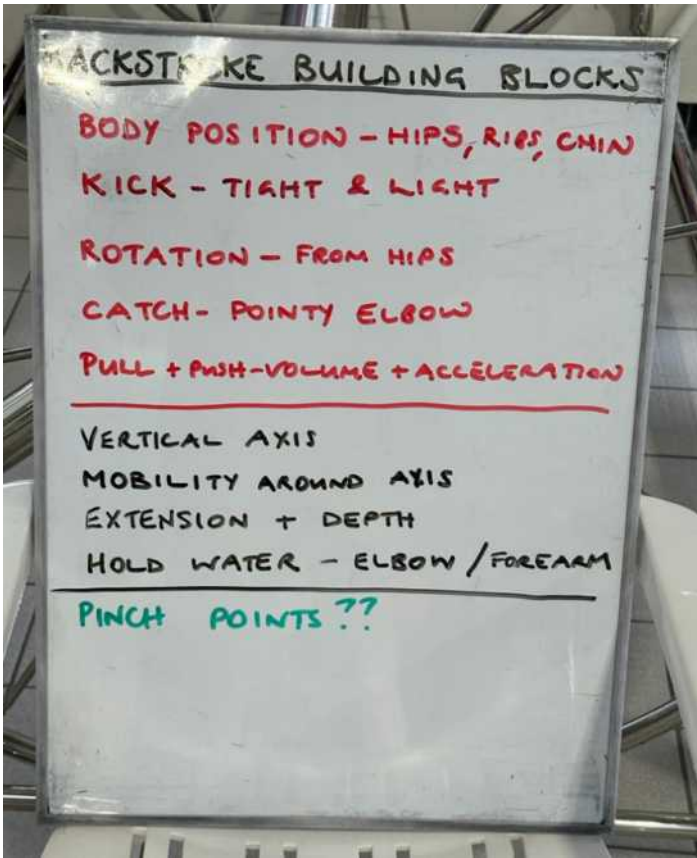 BACKSTROKE BUILDING BLOCKS
BODY POSITION - HIPS, RIBS, CHIN
KICK - TIGHT & LIGHT
ROTATION - FROM HIPS
CATCH - POINTY ELBOW
PULL + PUSH - VOLUME + ACCELERATION
VERTICAL AXIS
MOBILITY AROUND AXIS
EXTENSION + DEPTH
HOLD WATER - ELBOW / FOREARM
PINCH POINTS??